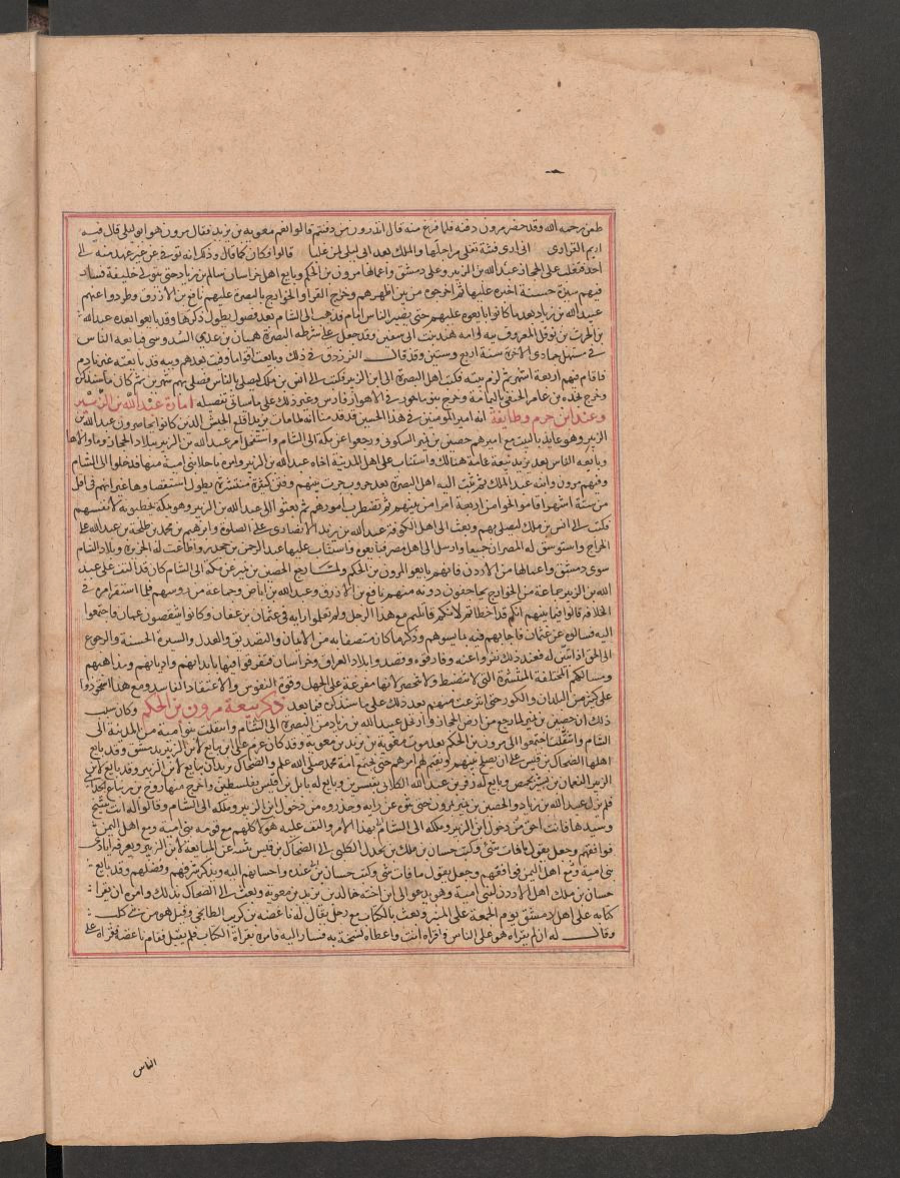 طعن رحمه الله وقد حضر مرون دفنه فلما فرغ منه قال اتدرون من دفنتم قالوا نعم معوية بن يزيد فقال مرون هو ابو ليلى قال فيه
ازنم الفزاري انى ارى فتنة تغلى مراجلها والملك بعد ابى ليلى لمن غلبا قالوا فكان كما قال وذكر انه توفي عن غير عهد منه الى
احد فتغلب على الحجاز عبد الله بن الزبير وعلى دمشق واعمالها مرون بن الحكم وبايع اهل خراسان سالم بن زياد حتى يتولى خليفة فسار
فيهم سيرة حسنة احبوه عليها ثم اخرجوه من بين اظهرهم وخرج القرا والخوارج بالبصرة عليهم نافع بن الازرق وطردوا عنهم
عبيد الله بن زياد بعد ما كانوا بايعوه عليهم حتى يصير للناس امام فذهب الى الشام بعد فصول يطول ذكرها وقد بايعوا بعده عبد الله
بن الحرث بن نوفل المعروف ببه وامه هند بنت ابى سفين وقد جعل على شرطة البصرة هميان بن عدي السدوسي فبايعه الناس
في مستهل جمادى الاخرة سنة اربع وستين وقد قال الفرزدق في ذلك وبايعت اقواما وفيت بعهدهم وببه قد بايعته غير نادم
فاقام فيهم اربعة اشهر ثم لزم بيته فكتب اهل البصرة الى ابن الزبير فكتب الى انس بن ملك ليصلي بالناس فصلى بهم شهرين ثم كان ما سنذكره
وخرج نجدة بن عامر الحنفي باليمامة وخرج بنو ماهور في الاهواز وفارس وغير ذلك على ما سياتى تفصيله امارة عبد الله بن الزبير
وعند ابن حزم وطايفة انه امير المومنين في هذا الحين قد قدمنا انه لما مات يزيد اقلع الجيش الذين كانوا يحاصرون عبد الله بن
الزبير وهو عايذ بالبيت مع اميرهم حصين بن نمير السكوني ورجعوا عن مكة الى الشام واستفحل امر عبد الله بن الزبير ببلاد الحجاز وما والاها
وبايعه الناس بعد يزيد بيعة عامة هنالك واستناب على اهل المدينة اخاه عبيد الله بن الزبير وامره باجلا بنى امية منها فرحلوا الى الشام
وفيهم مرون وابنه عبد الملك ثم بعث اليه اهل البصرة بعد حروب جرت بينهم وفتن كثيرة منتشرة يطول استقصاوها غير انهم في اقل
من ستة اشهر اقاموا نحوا من اربعة امرا من بينهم ثم تضطرب امورهم ثم بعثوا الى عبد الله بن الزبير وهو بمكة يخطبونه لانفسهم
فكتب الى انس بن ملك ليصلي بهم وبعث الى اهل الكوفة عبد الله بن يزيد الانصارى على الصلوة وابرهيم بن محمد بن طلحة بن عبيد الله على
الخراج واستوسق له المصران جميعا وارسل الى اهل مصر فبايعوه واستناب عليها عبد الرحمن بن جحدر واطاعت له الجزيرة وبلاد الشام
سوى دمشق واعمالها من الاردن فانهم بايعوا لمرون بن الحكم ولما رجع الحصين بن نمير عن مكة الى الشام كان قد التف على عبد
الله بن الزبير جماعة من الخوارج يجاحفون دونه منهم نافع بن الازرق وعبد الله بن اباض وجماعة من روسهم فلما استقر امره في
الخلافة قالوا فيما بينهم انكم قد اخطاتم لانكم قاتلتم مع هذا الرجل ولم تعلموا رايه في عثمان بن عفان وكانوا ينتقصون عثمان فاجتمعوا
اليه فسالوه عن عثمان فاجابهم فيه بما يسوهم وذكر ما كان متصفا به من الايمان والتصديق والعدل والسيرة الحسنة والرجوع
الى الحق اذا تبين له فعند ذلك نفروا عنه وفارقوه وقصدوا بلاد العراق وخراسان فتفرقوا فيها بابدانهم واديانهم ومذاهبهم
ومسالكهم المختلفة المنتشرة التى لا تنضبط ولا تنحصر لانها مفرعة على الجهل وقوة النفوس والاعتقاد الفاسد ومع هذا استحوذوا
على كثير من البلدان والكور حتى انتزعت منهم بعد ذلك على ما سنذكر فيما بعد ذكر بيعة مرون بن الحكم وكان سبب
ذلك ان حصين بن نمير لما رجع من ارض الحجاز وارتحل عبيد الله بن زياد من البصرة الى الشام وانتقلت بنو امية من المدينة الى
الشام اجتمعوا الى مرون بن الحكم بعد موت معوية بن يزيد بن معوية وقد كان عزم على ان يبايع لابن الزبير بدمشق وقد بايع
اهلها الضحاك بن قيس على ان يصلح بينهم ويقيم لهم امرهم حتى يجتمع امة محمد صلى الله عليه والضحاك يريد ان يبايع لابن الزبير وقد بايع لابن
الزبير النعمان بن بشير بحمص وبايع له زفر بن عبد الله الكلابي بقنسرين وبايع له نابل بن قيس بفلسطين واخرج منها روح بن زنباع الجذامى
فلم يزل عبيد الله بن زياد والحصين بن نمير بمرون حتى ثنوه عن رايه وحذروه من دخول ابن الزبير وملكه الى الشام وقالوا له انت شيخ
وسيدها فانت احق من دخول ابن الزبير وملكه الى الشام بهذا الامر والتف عليه هولا كلهم مع قومه بنى امية ومع اهل اليمن
فوافقهم وجعل يقول ما فات شى وكتب حسان بن ملك بن بحدل الكلبي الى الضحاك بن قيس يثنيه عن المبايعة لابن الزبير ويعرفه ايادى
بنى امية ومع اهل اليمن فوافقهم وجعل يقول ما فات شى وكتب حسان بن عنده واحسانهم اليه ويذكر شرفهم وفضلهم وقد بايع
حسان بن ملك اهل الاردن لبنى امية وهو يدعو الى ابن اخته خالد بن يزيد بن معوية وبعث الى الضحاك بذلك وامره ان يقرا
كتابه على اهل دمشق يوم الجمعة على المنبر وبعث بالكتاب مع رجل يقال له ناغضة بن كريب الطابخي وقيل هو من بنى كلب
وقال له ان لم يقراه هو على الناس فاقراه انت واعطاه نسخة به فسار اليه فامره بقراة الكتاب فلم يقبل فقام ناغضة فقراه على
الناس